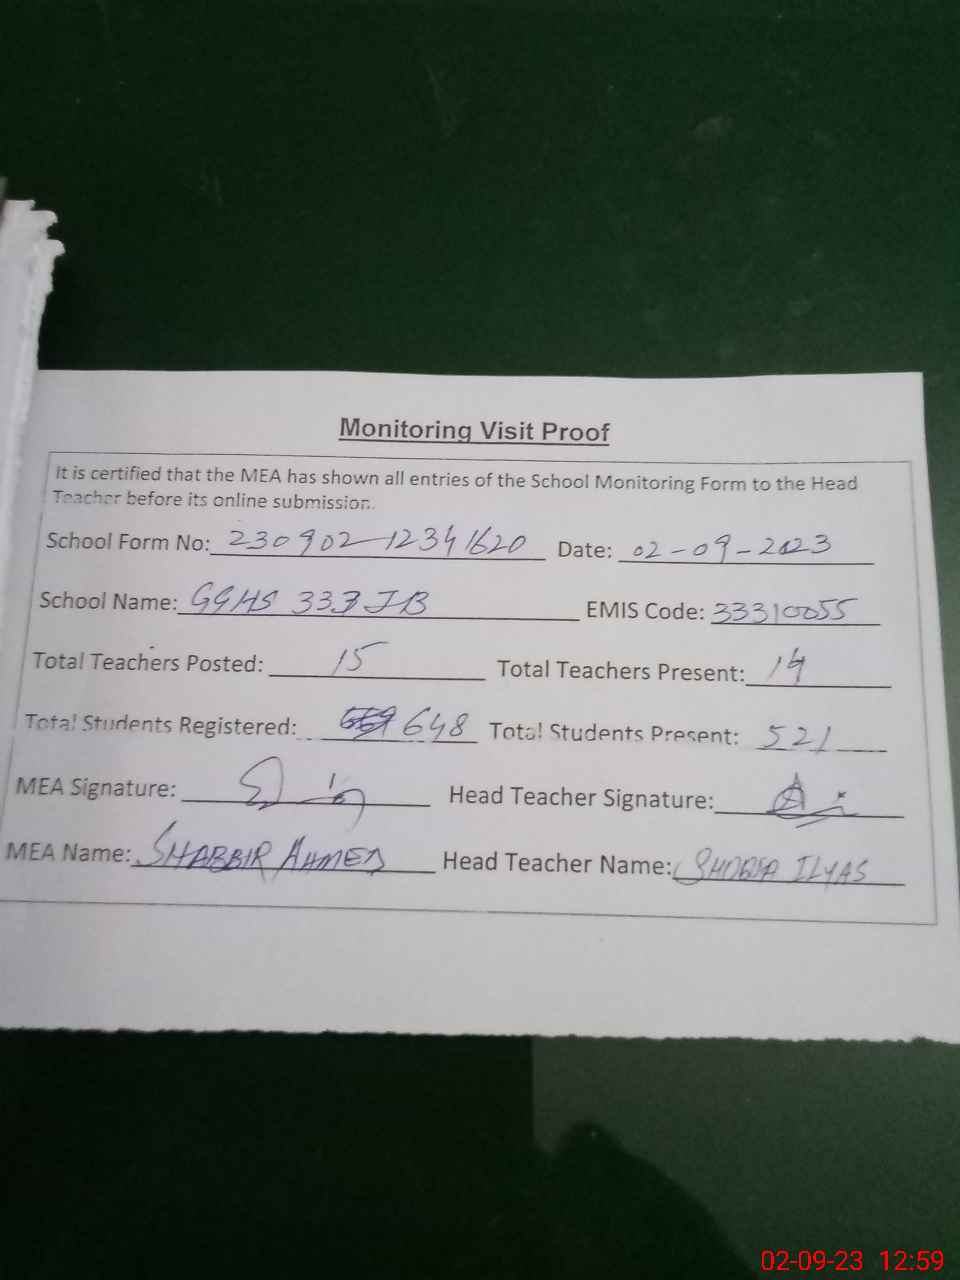 Monitoring Visit Proof
It is certified that the MEA has shown all entries of the School Monitoring Form to the Head
Teacher before its online submission.
School Form No: 230902-12341620 Date: 02-09-2023
School Name: GGHS 333 JB EMIS Code: 33310055
Total Teachers Posted: 15 Total Teachers Present: 14
Total Students Registered: 648 Total Students Present: 521
MEA Signature: Head Teacher Signature:
MEA Name: SHABBIR AHMED Head Teacher Name: ILYAS
02-09-23 12:59